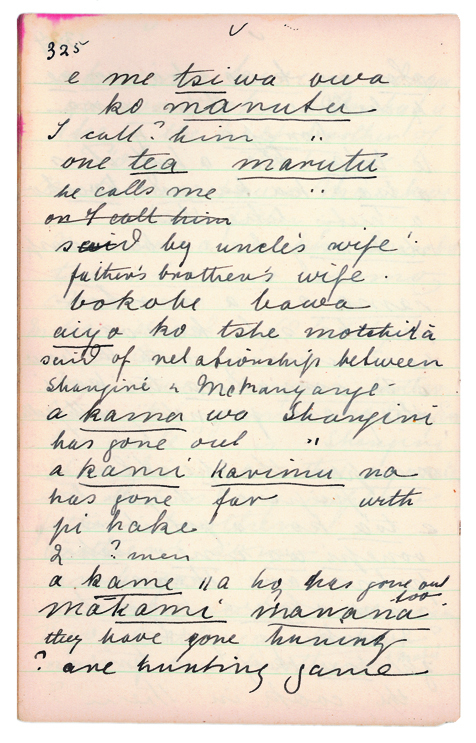 325
e me tsi wa owa
ko manutu
I call? him "
one tea marutu
he calls me "
or I call him
said by uncle's wife
father's brother's wife.
bokobe bawa
aiyo ko tshe motshitā
said of relationship between
Shangini & McManyangi
a kama wa Shangini
has gone out "
a kami karimu na
has gone far with
pi hake
2 ? men
a kame // a hq has gone out
too
makami manana
they have gone hunting
? are hunting game